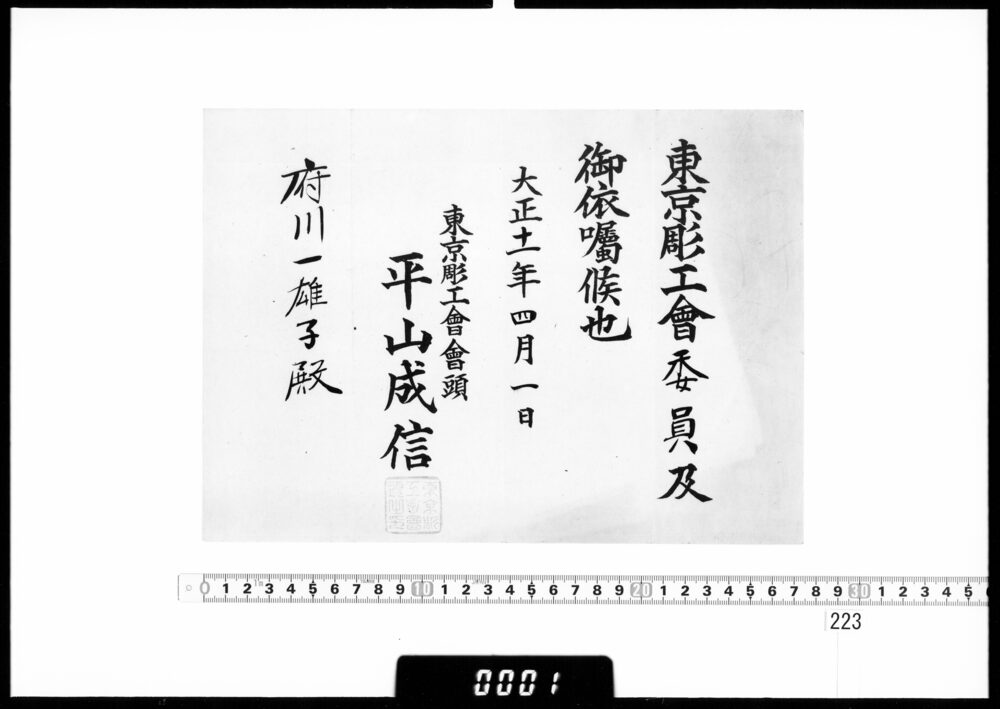 東京彫工會委員及
御依囑候也
大正十一年四月一日
東京彫工會會頭
平山成信
府川一雄子殿
0 1 2 3 4 5 6 7 8 9 10 1 2 3 4 5 6 7 8 9 20 1 2 3 4 5 6 7 8 9 30 1 2 3 4 5 6
223
0001